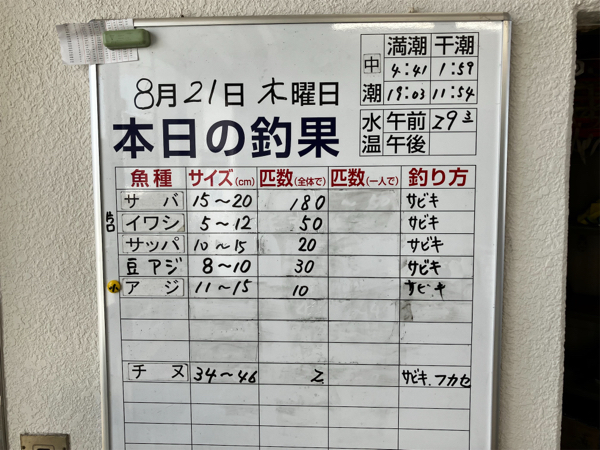 満潮 干潮
中潮 4:41 1:59
19:03 11:54
8月21日 木曜日
水温 午前 29.3
午後
本日の釣果
魚種 サイズ(cm) 匹数(全体で) 匹数(一人で) 釣り方
サバ 15〜20 180 サビキ
片口 イワシ 5〜12 50 サビキ
サッパ 10〜15 20 サビキ
豆アジ 8〜10 30 サビキ
小 アジ 11〜15 10 サビキ
チヌ 34〜46 2 サビキ.フカセ